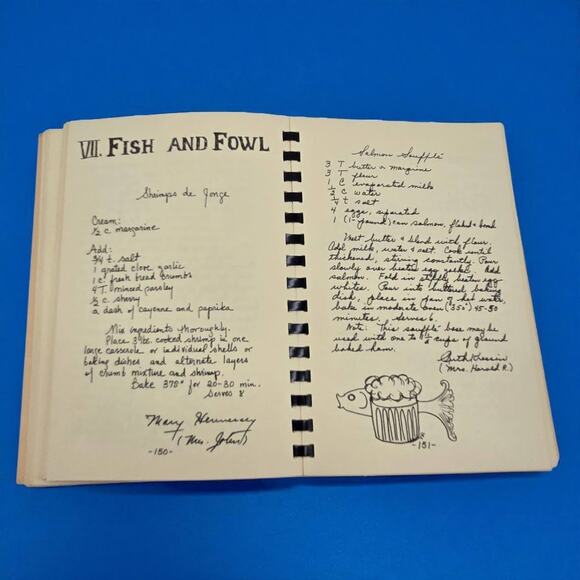 VII. FISH AND FOWL
Shrimps de Jonge
Cream:
½ c. margarine
Add:
¾ t. salt
1 grated clove garlic
1 c. fresh bread crumbs
4 T. minced parsley
½ c. sherry
a dash of cayenne and paprika
Mix ingredients thoroughly.
Place 3 lbs. cooked shrimp in one
large casserole or individual shells or
baking dishes and alternate layers
of crumb mixture and shrimp.
Bake 375° for 20-30 min.
Serves 8
Mary Hennessy
(Mrs. John)
-150-
Salmon Soufflé
3 T butter or margarine
3 T flour
1 C evaporated milk
C water
t salt
4 eggs, separated
1 (1-pound) can salmon, flaked & boned
Melt butter & blend with flour.
Add milk, water & salt. Cook until
thickened, stirring constantly. Pour
slowly over beaten egg yolks. Add
salmon. Fold in stiffly beaten egg
whites. Pour into buttered baking
dish, place in pan of hot water,
bake in moderate oven (350°) 45-50
minutes. Serves 6.
Note: This soufflé base may be
used with one to 1½ cups of ground
baked ham.
(Mrs. Harold R.)
-151-